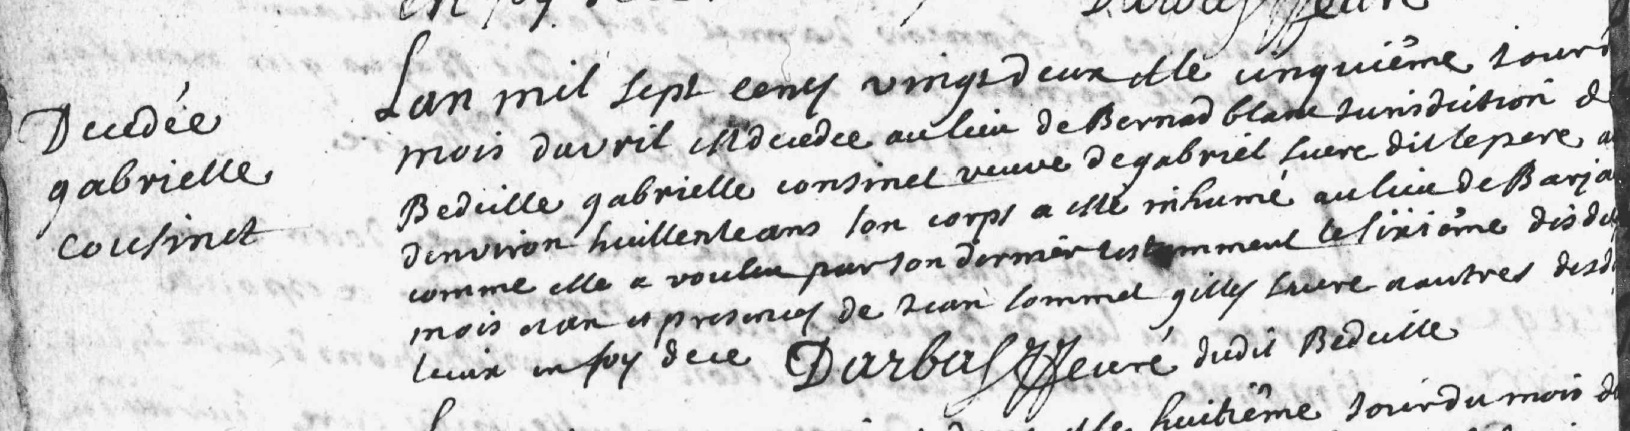 Decedée
gabrielle
cousinet
Lan mil sept cens vingt deux et le cinquiême jour d
mois davril est decedee au lieu de Bernad blanc Jurisdition d
Bedeille gabrielle consinet veuve de gabriel lucre dit le pere a
denviron huittente ans son corps a esté inhumé au lieu de Barja
comme elle a voulu par son dernier testamment le sixiême desdit
mois et an es presences de Jean sommet gilles lucre et autres desd
lieux en foy de ce Darbas curé dudit Bedeille
huitiême jour du mois d